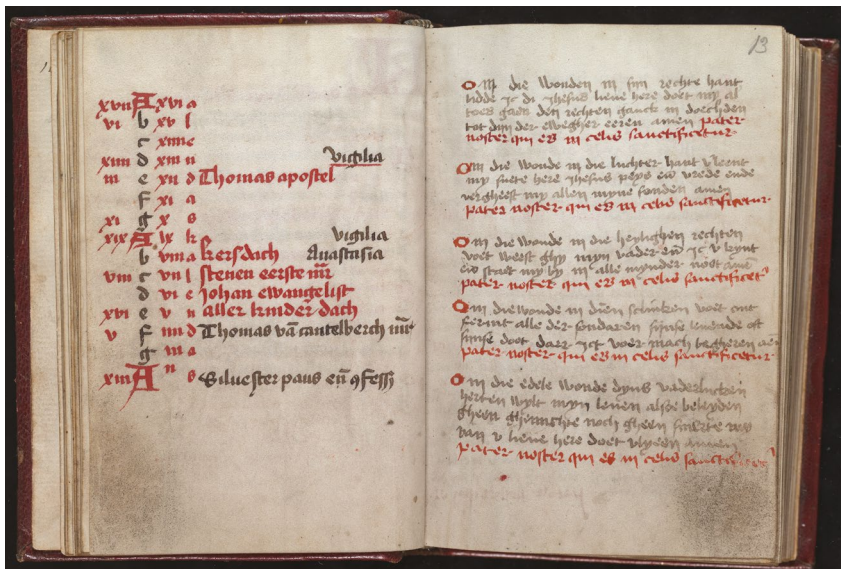 xvii A xvi a
vi b xv l
c xiiii e
xiiii d xiii n vigilia
iii e xii d Thomas apostel
f xi a
xi g x s
xix A ix k vigilia
b viii a kersdach Anastasia
viii c vii l steuen eerste mr
d vi e Johan ewangelist
xvi e v n aller kinder dach
v f iiii d Thomas vā cantelberch mr
g iii a
xiii A ii s Siluester paus eñ 9fess
13
O m die wonden in sijn rechte hant
ic di Jhesus lieue here doet my al
gaen den rechten ganck in doechden
tot dijn der ewegher eeren amen pater
noster qui es in celis sanctificetur
O m die wonde in die luchter hant
my suete here Jhesus peys eñ vrede ende
vergheeft my allen myne sonden amen
pater noster qui es in celis sanctificetur
O m die wonde in die heylighen rechten
voet weest ghy myn vader eñ ic v kynt
eñ staet my by in alle mynder noot amē
pater noster qui es in celis sanctificet
O m die wonde in dinen voet ont
fermt alle der sondaren sijnse leuende oft
sijnse doet daer ict voer mach begheren
pater noster qui es in celis sanctificetur
O m die edele wonde dyns
herten wylt myn leuen alsoe beleyden
gheen noch gheen smerte my
van v lieue here doet amen
pater noster qui es in celis